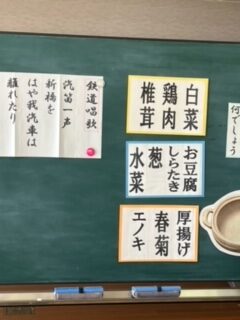 何でしょう
白菜
鶏肉
椎茸
お豆腐
しらたき
葱
水菜
厚揚げ
春菊
エノキ
鉄道唱歌
汽笛一声
新橋を
はや我汽車は
離れたり